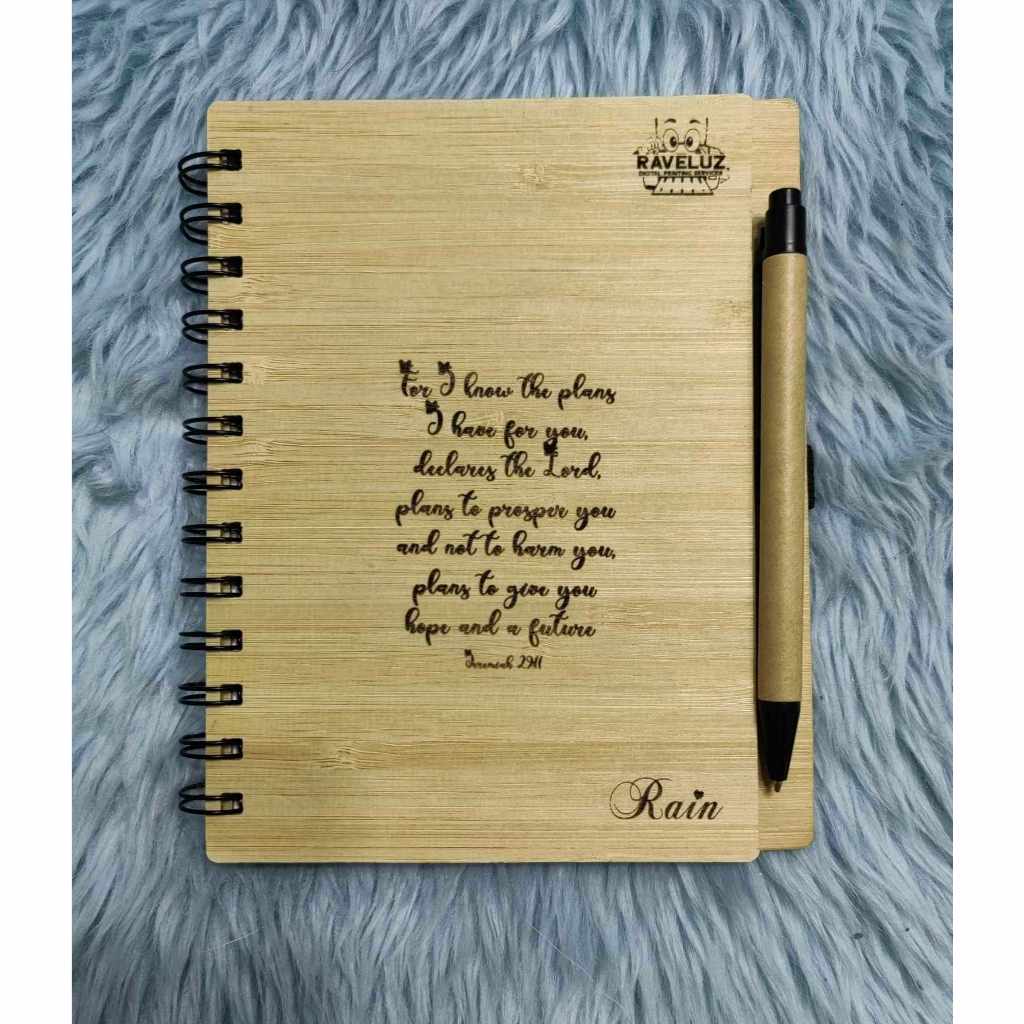 RAVELUZ
DIGITAL PRINTING SERVICES
For I know the plans
I have for you,
declares the Lord,
plans to prosper you
and not to harm you,
plans to give you
hope and a future
Jeremiah 29:11
Rain